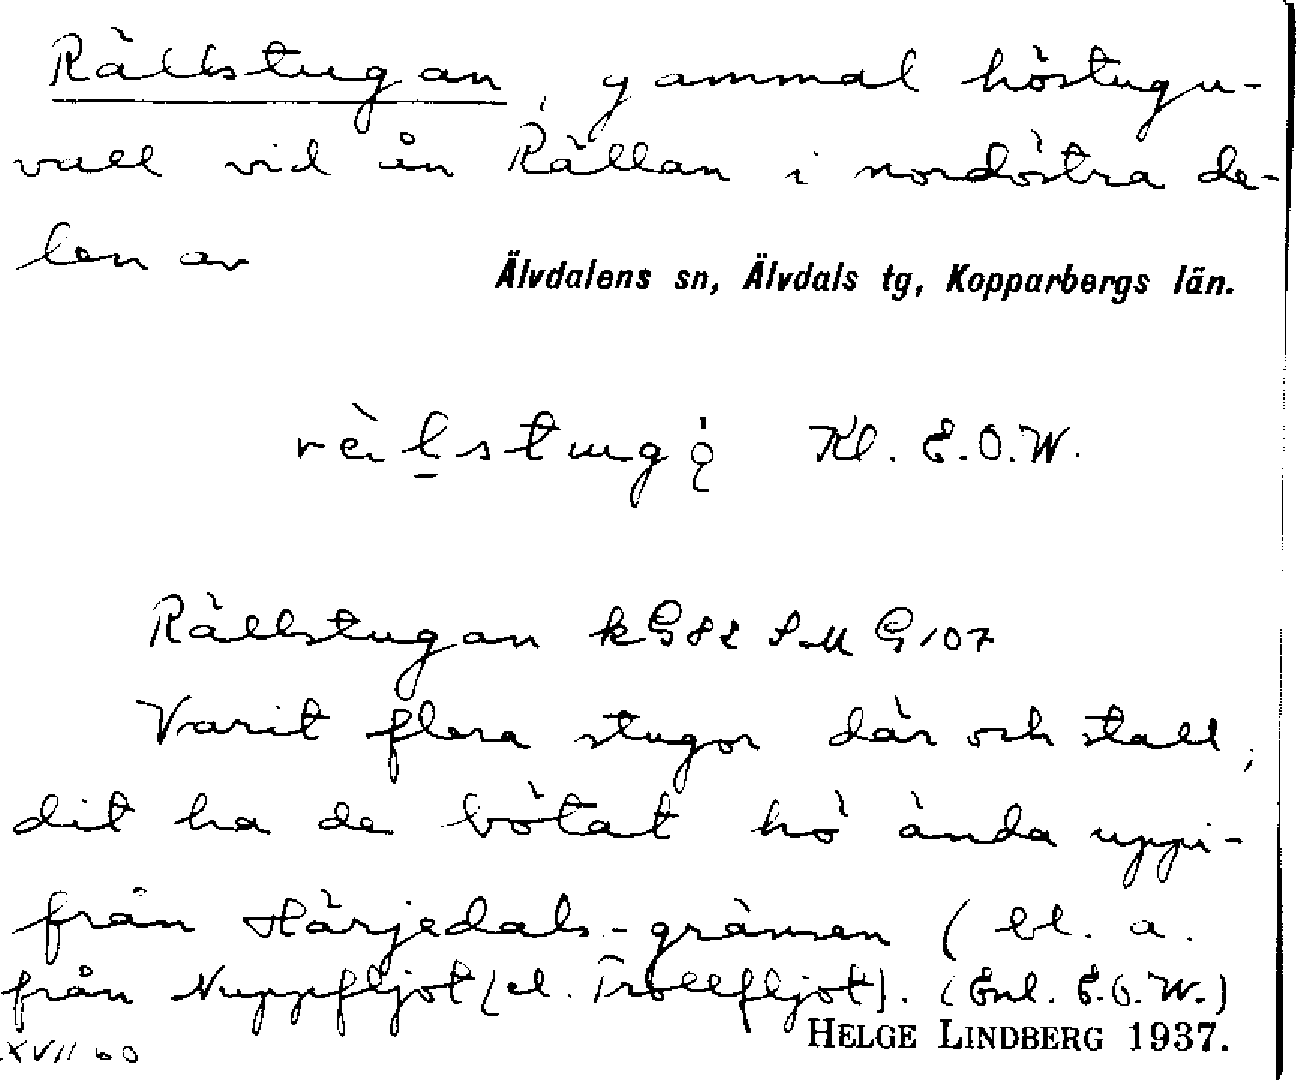 Rällstugan, gammal höstugu-
vall vid ån Rällan i nordöstra de-
len av
Älvdalens sn, Älvdals tg, Kopparbergs län.
Kl. E.O.W.
Rällstugan kG82 SMG107
Varit flera stugor där och stall,
dit ha de bötat hö ända uppi-
från Härjedals-gränsen (bl. a.
från Nuppfljot (el. Trollfljot). (Enl. E.O.W.)
HELGE LINDBERG 1937.
XVII 60